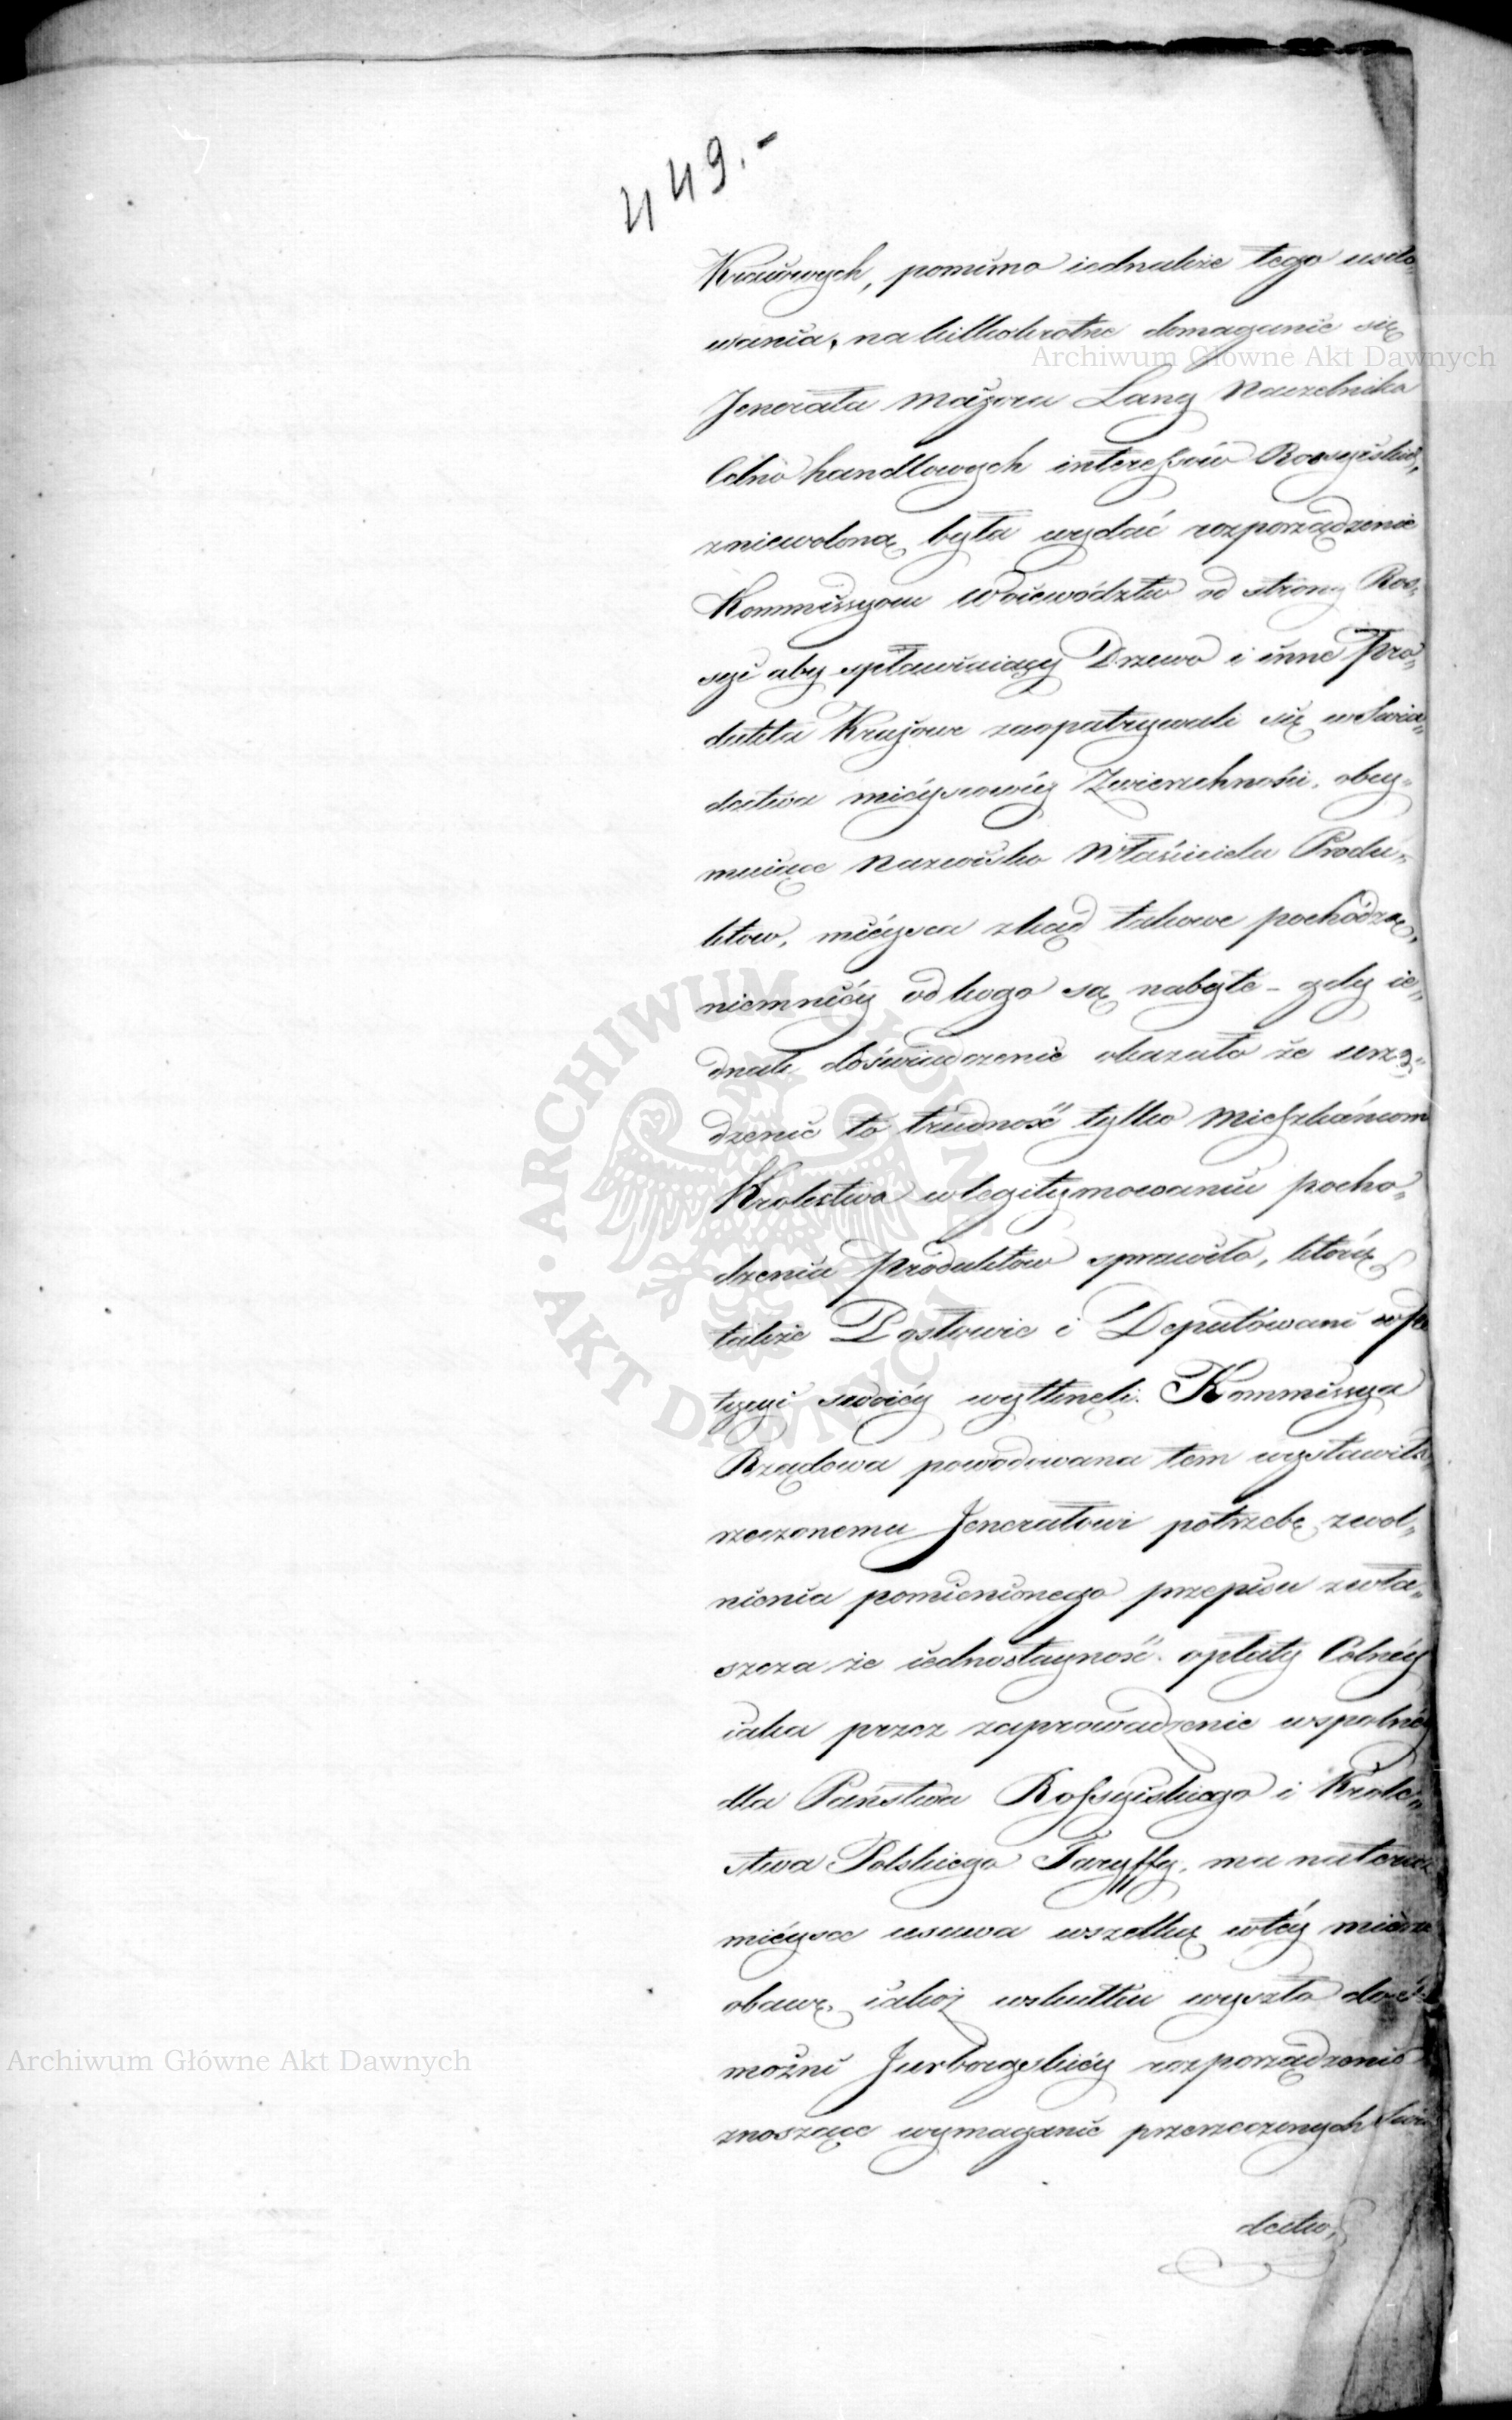 449.-
Kraiowych, pomimo iednakże tego usiło-
wania, na kilkokrotne domaganie się
Archiwum Główne Akt Dawnych
Jenerała Majora Lang Naczelnika
Celno handlowych interessów Rossyiskich,
zniewoloną była wydać rozporządzenie
Kommissyom Woiewództw od strony Ros-
syi aby spławiaiący Drzewo i inne Pro-
dukta Krajowe zaopatrywali się w Swia-
dectwa mieyscowéy Zwierzchności, obey-
muiące Nazwisko Właściciela Produ-
któw, mieysca zkąd takowe pochodzą,
niemniéy od kogo są nabyte - gdy ie-
dnak doświadczenie okazało że urzą-
dzenie to trudność tylko Mieszkańcom
Krolestwa w legitymowaniu pocho-
dzenia Produktow sprawiło, którą
także Posłowie i Deputowani w Pe
tycyi swoiéy wytknęli. Kommissya
Rządowa powodowana tem wystawiła
rzeczonemu Jenerałowi potrzebę zwol-
nienia pomienionego przepisu zwła-
szcza że iednostayność opłaty Celnéy
iaka przez zaprowadzenie wspolnéy
dla Państwa Rossyiskiego i Krole-
stwa Polskiego Taryffy, ma na teraz
mieysce usuwa wszelką w téy mierze
obawę, iakoż w skutku wyszło do
możni Jurborgskiéy rozporządzenie
Archiwum Główne Akt Dawnych
znoszące wymaganie przerzeczonych Swia
dectw,
ARCHIWUM GŁÓWNE AKT DAWNYCH
Archiwum Główne Akt Dawnych